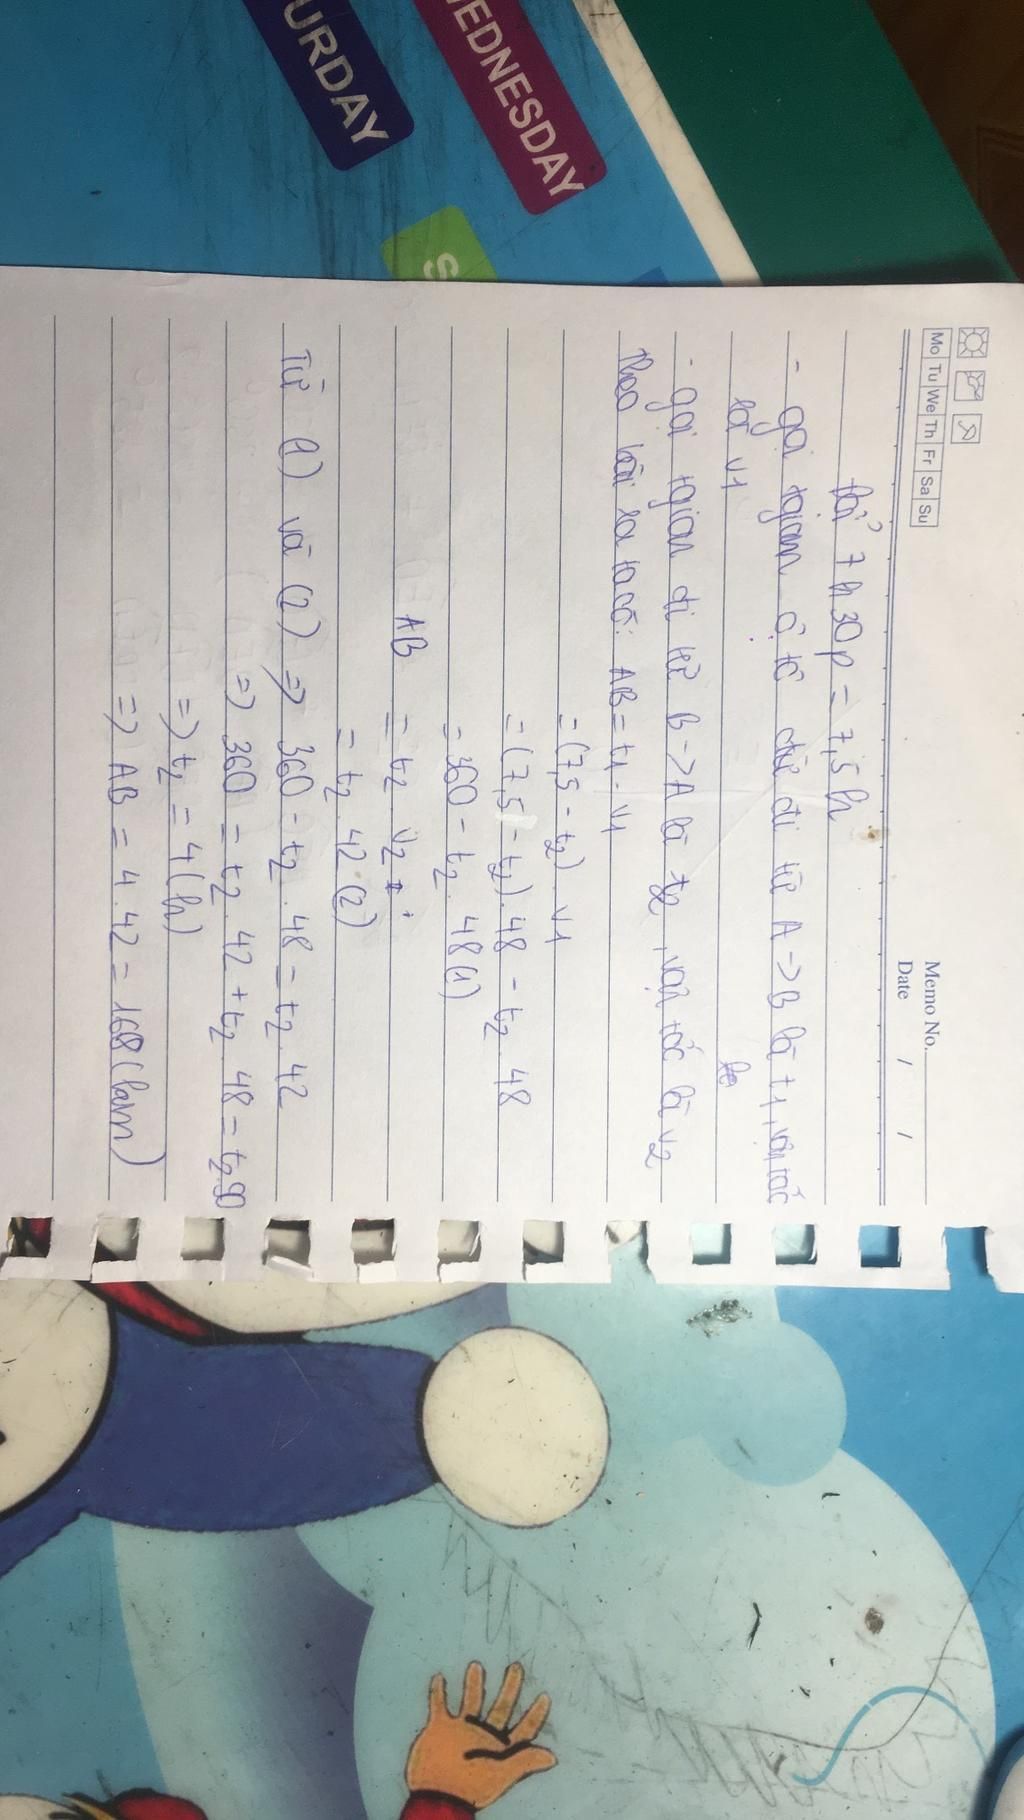 URDAY
WEDNESDAY
S
Mo Tu We Th Fr Sa Su
Memo No.
Date / /
7h30p = 7,5h
- gọi tgian ô tô đi từ A->B là t1, vận tốc
là v1
- gọi tgian đi từ B->A là t2, vận tốc là v2
theo bài ra ta có: AB = t1 . v1
= (7,5 - t2) . v1
= (7,5 - t2) . 48 - t2 . 48
= 360 - t2 . 48 (1)
AB = t2 . v2
= t2 . 42 (2)
Từ (1) và (2) => 360 - t2 . 48 = t2 . 42
=> 360 = t2 . 42 + t2 . 48 = t2.90
=> t2 = 4 (h)
=> AB = 4 . 42 = 168 (km)